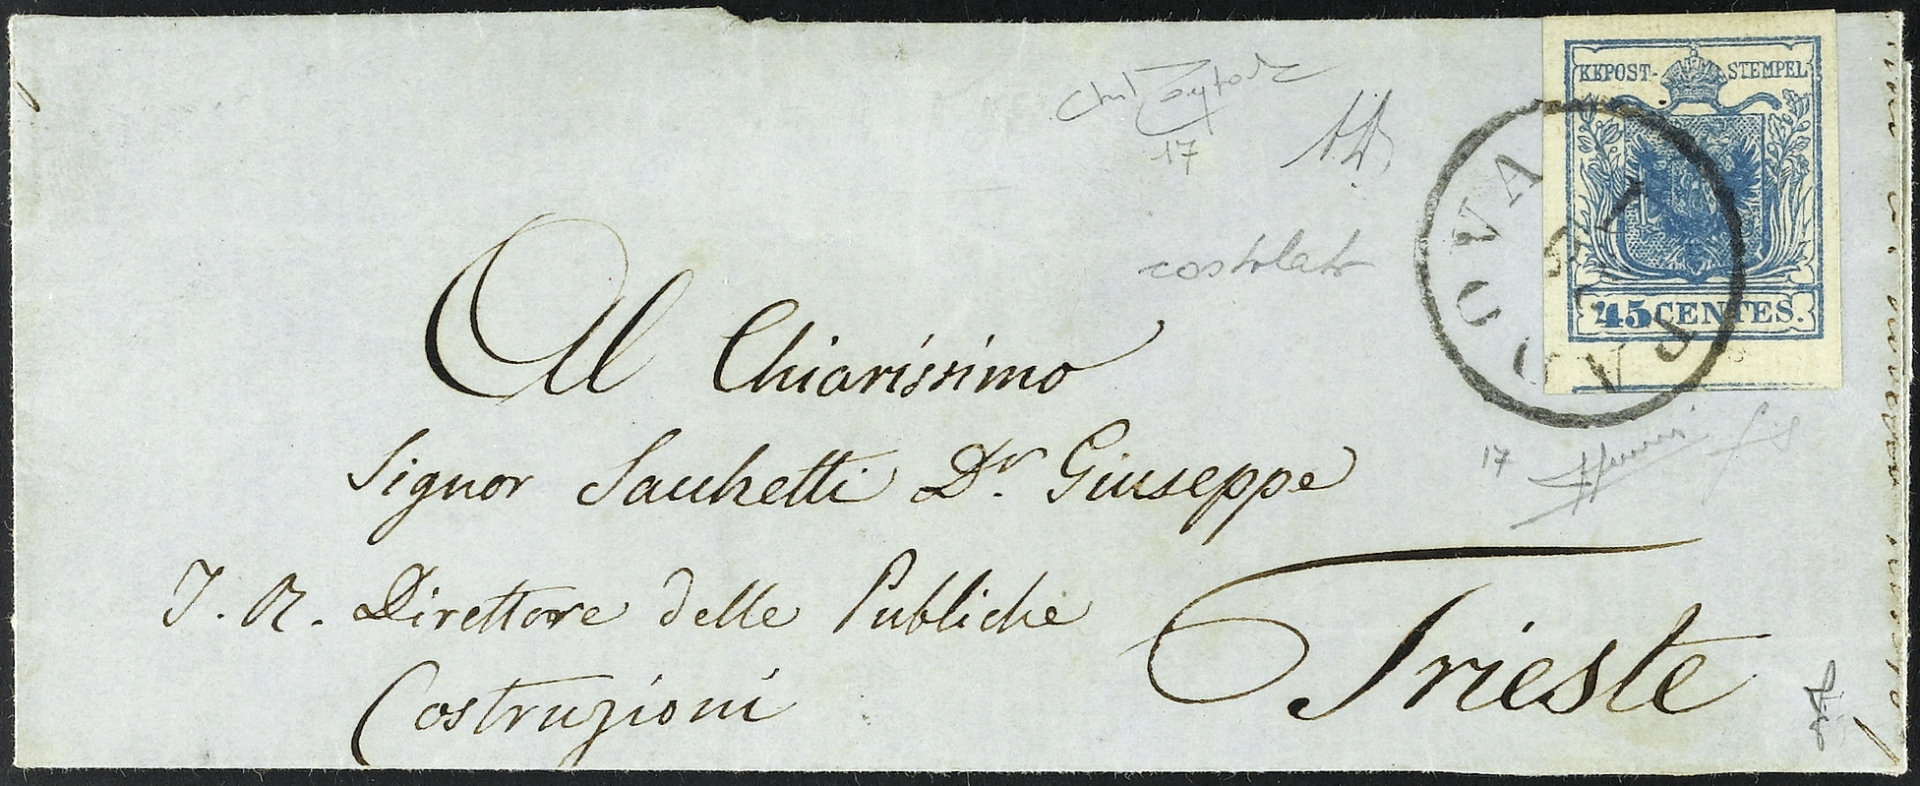 KKPOST- STEMPEL
45 CENTES.
PADOVA
17
costolato
Al Chiarissimo
Signor Sacchetti Dr. Giuseppe
17
I. R. Direttore delle Pubbliche
Costruzioni
Trieste